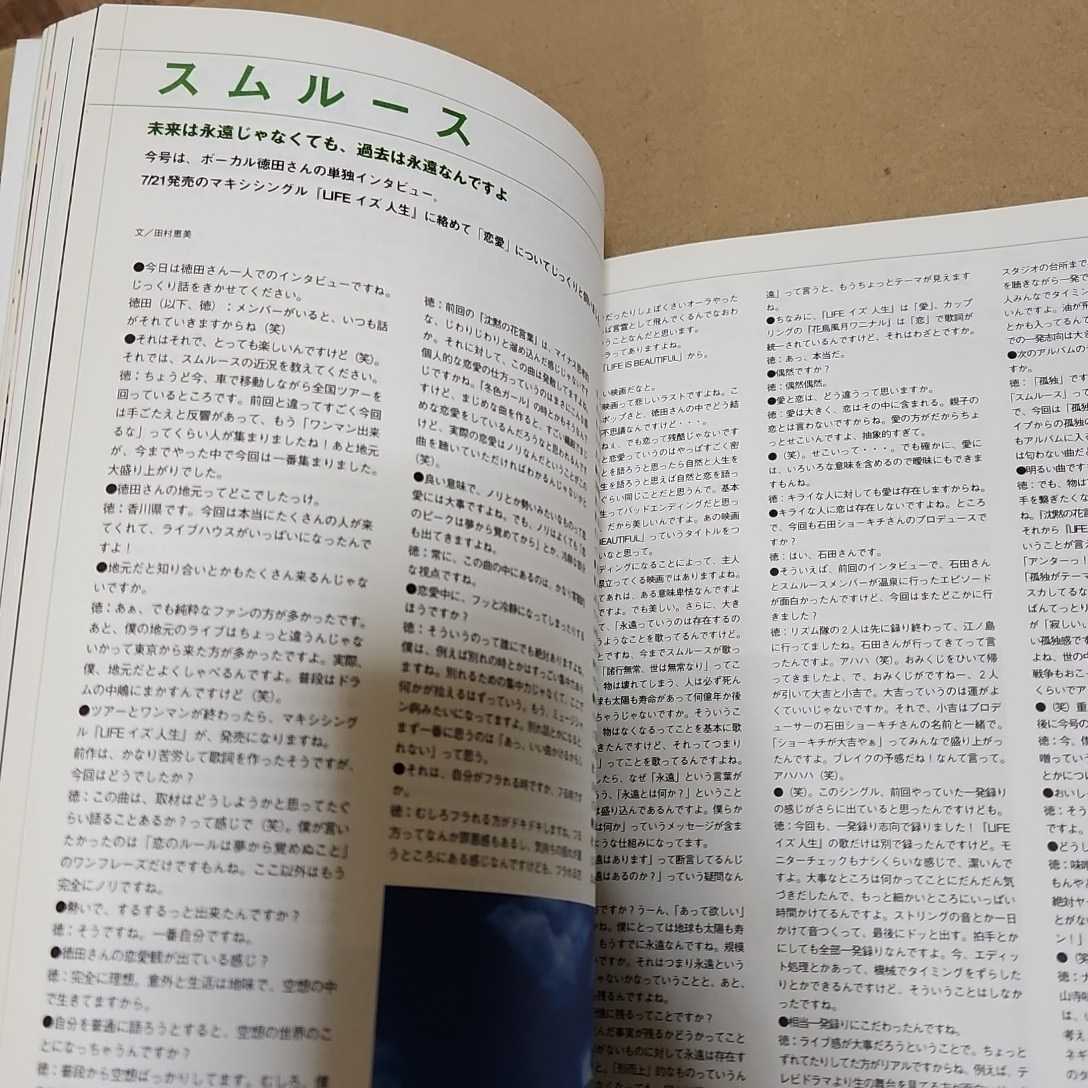 スムルース
未来は永遠じゃなくても、過去は永遠なんですよ
今号は、ボーカル徳田さんの単独インタビュー。
7/21発売のマキシシングル『LIFE イズ 人生』に絡めて「恋愛」についてじっくりと
文／田村恵美
●今日は徳田さん一人でのインタビューですね。
じっくり話をきかせてください。
徳田（以下、徳）：メンバーがいると、いつも話
がそれていきますからね（笑）
●それはそれで、とっても楽しいんですけど（笑）。
それでは、スムルースの近況を教えてください。
徳：ちょうど今、車で移動しながら全国ツアーを
回っているところです。前回と違ってすごく今回
は手ごたえと反響があって、もう「ワンマン出来
るな」ってくらい人が集まりましたね！あと地元
が、今までやった中で今回は一番集まりました。
大盛り上がりでした。
●徳田さんの地元ってどこでしたっけ。
徳：香川県です。今回は本当にたくさんの人が来
てくれて、ライブハウスがいっぱいになったんで
すよ！
●地元だと知り合いとかもたくさん来るんじゃな
いですか。
徳：あぁ、でも純粋なファンの方が多かったです。
あと、僕の地元のライブはちょっと違うんじゃな
いかって東京から来た方が多かったですよ。実際、
僕、地元だとよくしゃべるんですよ。普段はドラ
ムの中嶋にまかすんですけど（笑）。
●ツアーとワンマンが終わったら、マキシシング
ル『LIFE イズ 人生』が、発売になりますね。
前作は、かなり苦労して歌詞を作ったそうですが、
今回はどうでしたか？
徳：この曲は、取材はどうしようかと思ってたぐ
らい語ることあるか？って感じで（笑）。僕が言い
たかったのは「恋のルールは夢から覚めぬこと」
のワンフレーズだけですもんね。ここ以外はもう
完全にノリですね。
●勢いで、するするっと出来たんですか？
徳：そうですね。一番自分ですね。
●徳田さんの恋愛観が出ている感じ？
徳：完全に理想。意外と生活は地味で、空想の中
で生きてますから。
●自分を普通に語ろうとすると、空想の世界のこ
とになっちゃうんですか？
徳：普段から空想ばっかりしてます。むしろ、僕
徳：前回の「沈黙の花言葉」は、マイナス思考
な、じわりじわりと溜め込んだ感じじゃないです
か。それに対して、この曲は発散してますよね。
個人的な恋愛の仕方っていうのはまさにこんな感
じですかね。「冬色ガール」の時とかもそうなんで
すけど、まじめな曲を作ると、すごい繊細でまじ
めな恋愛をしているんだろうなと思われるんです
けど、実際の恋愛はノリなんだということがこの
曲を聴いていただければわかるんじゃないかと
（笑）。
●良い意味で、ノリとか勢いみたいなものって恋
愛には大事ですよね。でも、ノリはよくても「恋
のピークは夢から覚めてから」とか、冷静な部分
も出てきますよね。
徳：常に、この曲の中にあるのは、かなり客観的
な視点ですね。
●恋愛中に、フッと冷静になってしまったりする
ほうですか？
徳：そういうのって誰にでも絶対ありますよね。
僕は、例えば別れの時とかはすっごい集中力あり
ますね。別れるための集中力じゃなくて、ここで
何かが拾えるはずっていう。もう、ミュージシャ
ン病みたいになってますよ。別れ話とかになると
まず一番に思うのは「あっ、いい曲かけるかもし
れない」って思う。
●それは、自分がフラれる時ですか、フる時です
か。
徳：むしろフラれる方がドキドキしますね。フる
方ってなんか罪悪感もあるし、気持ちの揺れが違
うところにある感じなんですけども、フラれる恋
だったりしょぱくさいオーラやった
ば言霊として飛んでくるんでなおわ
うことなんだと思います。
ラってありますよね。
「LIFE IS BEAUTIFUL」から。
い映画だなと。
映画って悲しいラストですよね。こ
ポップさと、徳田さんの中でどう結
不思議なんですけど・・・。
ねえ、でも恋って残酷じゃないです
と恋愛っていうのはやっぱすごく密
とを語ろうと思ったら自然と人生を
生を語ろうと思えば自然と恋を語っ
ぐらい同じことだと思うんで。基本
生ってバッドエンディングだと思っ
、だから美しいんですよ。あの映画
BEAUTIFUL」っていうタイトルをつ
いなと思って。
ディングになることによって、主人
際立ってくる映画ではありますよね。
てあれは、ある意味卑怯なんですよ
ですよ。でも美しい。さらに、大き
て、「永遠っていうのは存在するの
うようなことを歌ってるんですけど。
とですね、今までスムルースが歌っ
「諸行無常、世は無常なり」ってこ
、物は壊れてしまう、人は必ず死ん
球も太陽も寿命があって何億年か後
ちゃうじゃないですか。そういうこ
、物はなくなるってことを基本に歌
きたんですけど、それってつまり
」ってことを歌ってるんですよね。
したら、なぜ「永遠」という言葉が
ろう、「永遠とは何か？」ということ
は盛り込んであるんですよ。僕らか
は何か」っていうメッセージが含ま
ような仕組みになってます。
遠はあります」って断言してるんじ
遠はあるのか？」っていう疑問なん
ですか？うーん、「あって欲しい」
ね。僕にとっては地球も太陽も寿
、もうすでに永遠なんですね。規模
いですか。それはつまり永遠という
ゃないかなっていうことと、あと、
残るんですよね。
憶に残るってことですか？
んだ事実が残るかどうかってこと
がないものに対して永遠は存在す
と、「形而上」的なものっていうん
遠」って言うと、もうちょっとテーマが見えます
ね。
●ちなみに、『LIFE イズ 人生』は「愛」、カップ
リングの『花鳥風月ワニナル』は「恋」で歌詞が
統一されているんですけど、それはわざとですか。
徳：あっ、本当だ。
●偶然ですか？
徳：偶然偶然。
●愛と恋は、どう違うって思いますか。
徳：愛は大きく、恋はその中に含まれる。親子の
恋とは言わないですからね。愛の方がだからちょ
っとせこいんですよ、抽象的すぎて。
●（笑）。せこいって・・・。でも確かに、愛に
は、いろいろな意味を含めるので曖昧にもできま
すもんね。
徳：キライな人に対しても愛は存在しますからね。
●キライな人に恋は存在しないですよね。ところ
で、今回も石田ショーキチさんのプロデュースで
すか？
徳：はい、石田さんです。
●そういえば、前回のインタビューで、石田さん
とスムルースメンバーが温泉に行ったエピソード
が面白かったんですけど、今回はまたどこかに行
きました？
徳：リズム隊の２人は先に録り終わって、江ノ島
に行ってましたね。石田さんが行ってきてって言
ったんですよ。アハハ（笑）。おみくじをひいて帰
ってきましたよ、で、おみくじがですねー、２人
が引いて大吉と小吉で。大吉っていうのは運がよ
くていいじゃないですか。それで、小吉はプロデ
ューサーの石田ショーキチさんの名前と一緒で。
「ショーキチが大吉やぁ」ってみんなで盛り上がっ
たんですよ。ブレイクの予感だね！なんて言って。
アハハハ（笑）。
●（笑）。このシングル、前回やっていた一発録り
の感じがさらに出ていると思ったんですけども。
徳：今回も、一発録り志向で録りました！『LIFE
イズ 人生』の歌だけは別で録ったんですけど。モ
ニターチェックもナシくらいな感じで、潔いんで
すよ。大事なところは何かってことにだんだん気
づきだしたんで、もっと細かいところにいっぱい
時間かけてるんですよ。ストリングの音とか一日
かけて音つくって、最後にドッと出す。拍手とか
にしても全部一発録りなんですよ。今、エディッ
ト処理とかあって、機械でタイミングをずらした
りとかできるんですけど、そういうことはしなか
ったですね。
●相当一発録りにこだわったんですね。
徳：ライブ感が大事だろうということで。ちょっと
ずれてたりしてた方がリアルですからね、例えば、テ
レビドラマより生の舞台を見て
スタジオの台所まで
を聴きながら一発で
人みんなでタイミン
いんですよ。油が飛
とかも入ってるんで
での一発志向は大
●次のアルバムの
すか。
徳：「孤独」です
「スムルース」って
で、今回は「孤独
イブからの孤独の
もアルバムに入
は匂わない曲だ
●明るい曲です
徳：でも、物は
手を繋ぎたくな
ね。「沈黙の花
それから『LIF
いうことが言え
「アンターっ！
「孤独がテー
スカしてるな
ばんてっとり
が「寂しい」
い孤独感です
よね、世の中
戦争もおこっ
くらいでア
●（笑）重
後に今号の
徳：今、僕
贈っていう
とかについ
●おいし
徳：そう
ですよ。
●どうし
徳：味噌
もんや
絶対ヤ
とがな
ン！」
●（笑
徳：ナ
山寺
は、
考え
ネギ
のグ